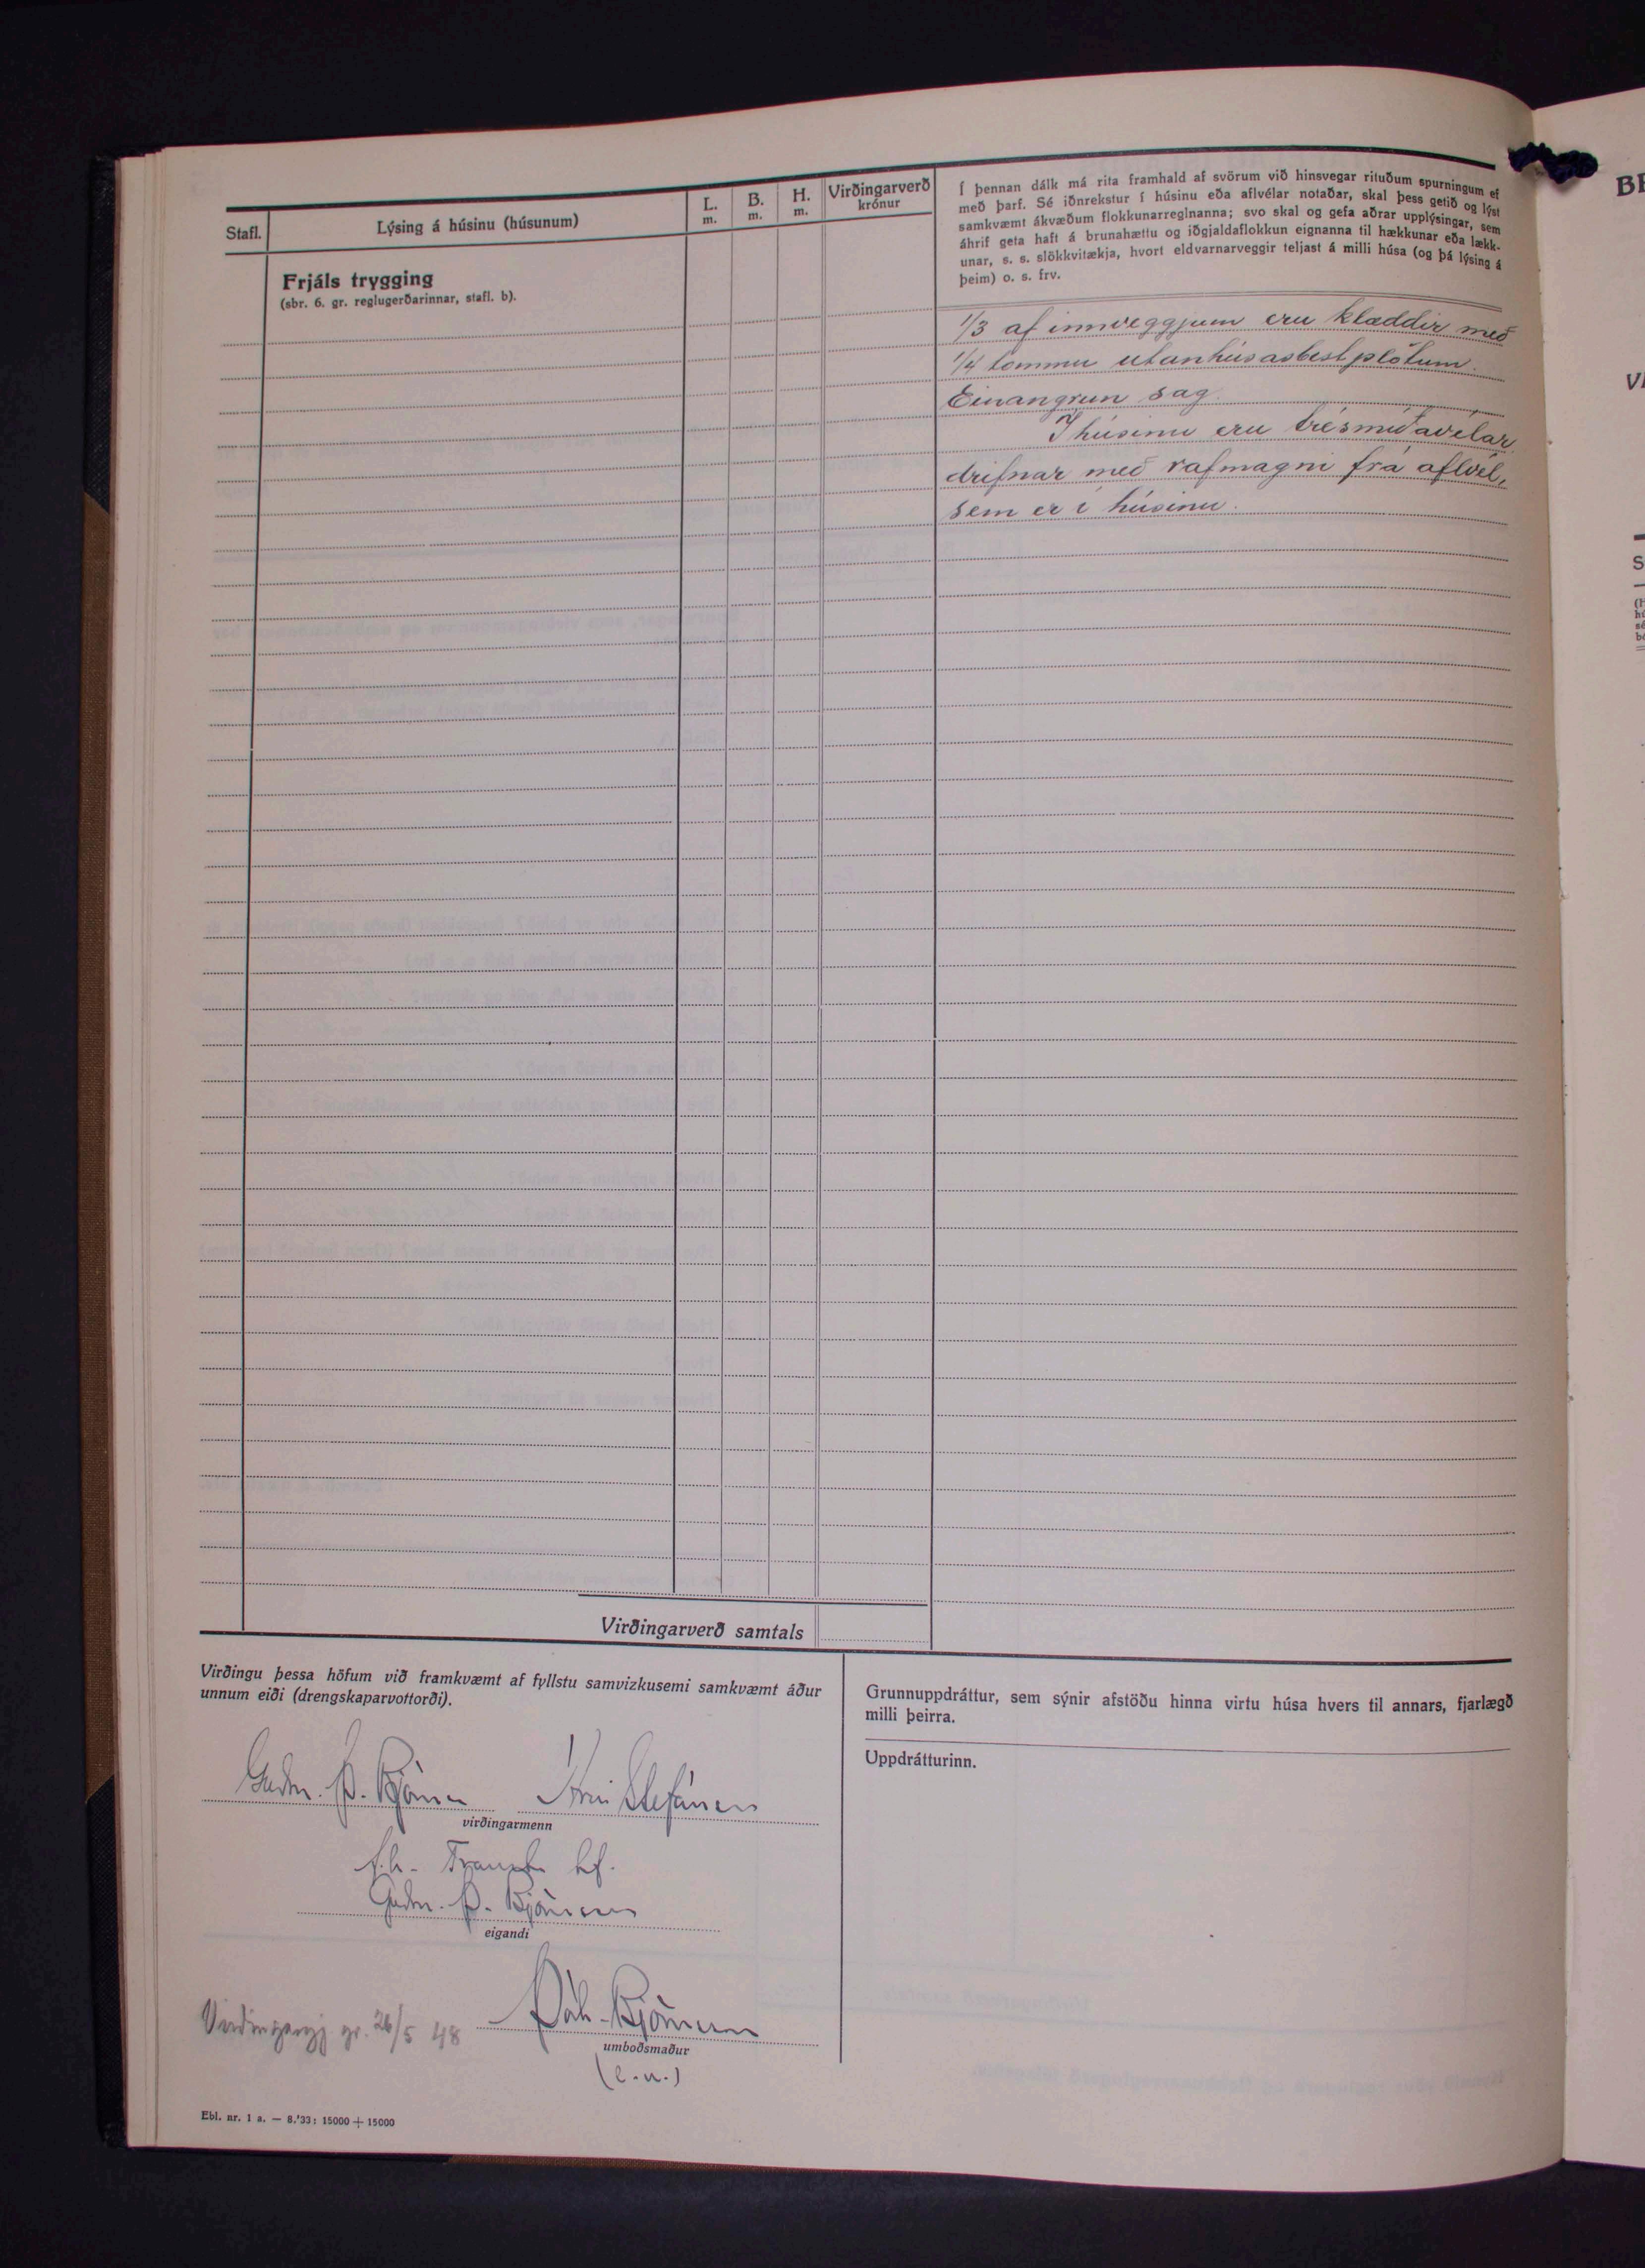 Stafl.
Lýsing á húsinu (húsunum)
L.
m.
B.
m.
H.
m.
Virðingarverð
krónur
Frjáls trygging
(sbr. 6. gr. reglugerðarinnar, stafl. b).
Í þennan dálk má rita framhald af svörum við hinsvegar rituðum spurningum ef
með þarf. Sé iðnrekstur í húsinu eða aflvélar notaðar, skal þess getið og lýst
samkvæmt ákvæðum flokkunarreglnanna; svo skal og gefa aðrar upplýsingar, sem
áhrif geta haft á brunahættu og iðgjaldaflokkun eignanna til hækkunar eða lækk-
unar, s. s. slökkvitækja, hvort eldvarnarveggir teljast á milli húsa (og þá lýsing á
þeim) o. s. frv.
1/3 af innveggjum eru klæddir með
1/4 tommu utanhúsasbestplötum.
Einangrun sag.
Í húsinu eru trésmíðavélar
drifnar með rafmagni frá aflvél,
sem er í húsinu.
Virðingarverð samtals
Virðingu þessa höfum við framkvæmt af fyllstu samvizkusemi samkvæmt áður
unnum eiði (drengskaparvottorði).
Guðm. Þ. Björnsson Árni Stefánsson
virðingarmenn
f.h. Trausta hf.
Guðm. Þ. Björnsson
eigandi
Virðingargj gr. 26/5 48
Björnsson
umboðsmaður
(e.u.)
Grunnuppdráttur, sem sýnir afstöðu hinna virtu húsa hvers til annars, fjarlægð
milli þeirra.
Uppdrátturinn.
Ebl. nr. 1 a. — 8.'33: 15000 + 15000